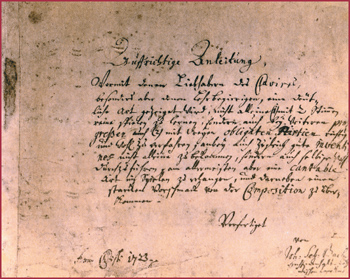 Auffrichtige Anleitung,
Wormit denen Liebhabern des Clavires,
besonders aber denen Lehrbegierigen, eine deüt-
liche Art gezeiget wird, nicht alleine mit 2 Stimen
reine spielen zu lernen, sondern auch bey weiteren pro-
greßen auch mit dreyen obligaten Partien richtig
und wohl zu verfahren, anbey auch zugleich gute inventio-
nes nicht alleine zu bekommen, sondern auch selbige wohl
durchzuführen, am allermeisten aber eine cantable
Art im Spielen zu erlangen, und darneben einen
starcken Vorschmack von der Composition zu über-
kommen.
Verfertiget
von
Anno Christi 1723.
Joh. Seb. Bach